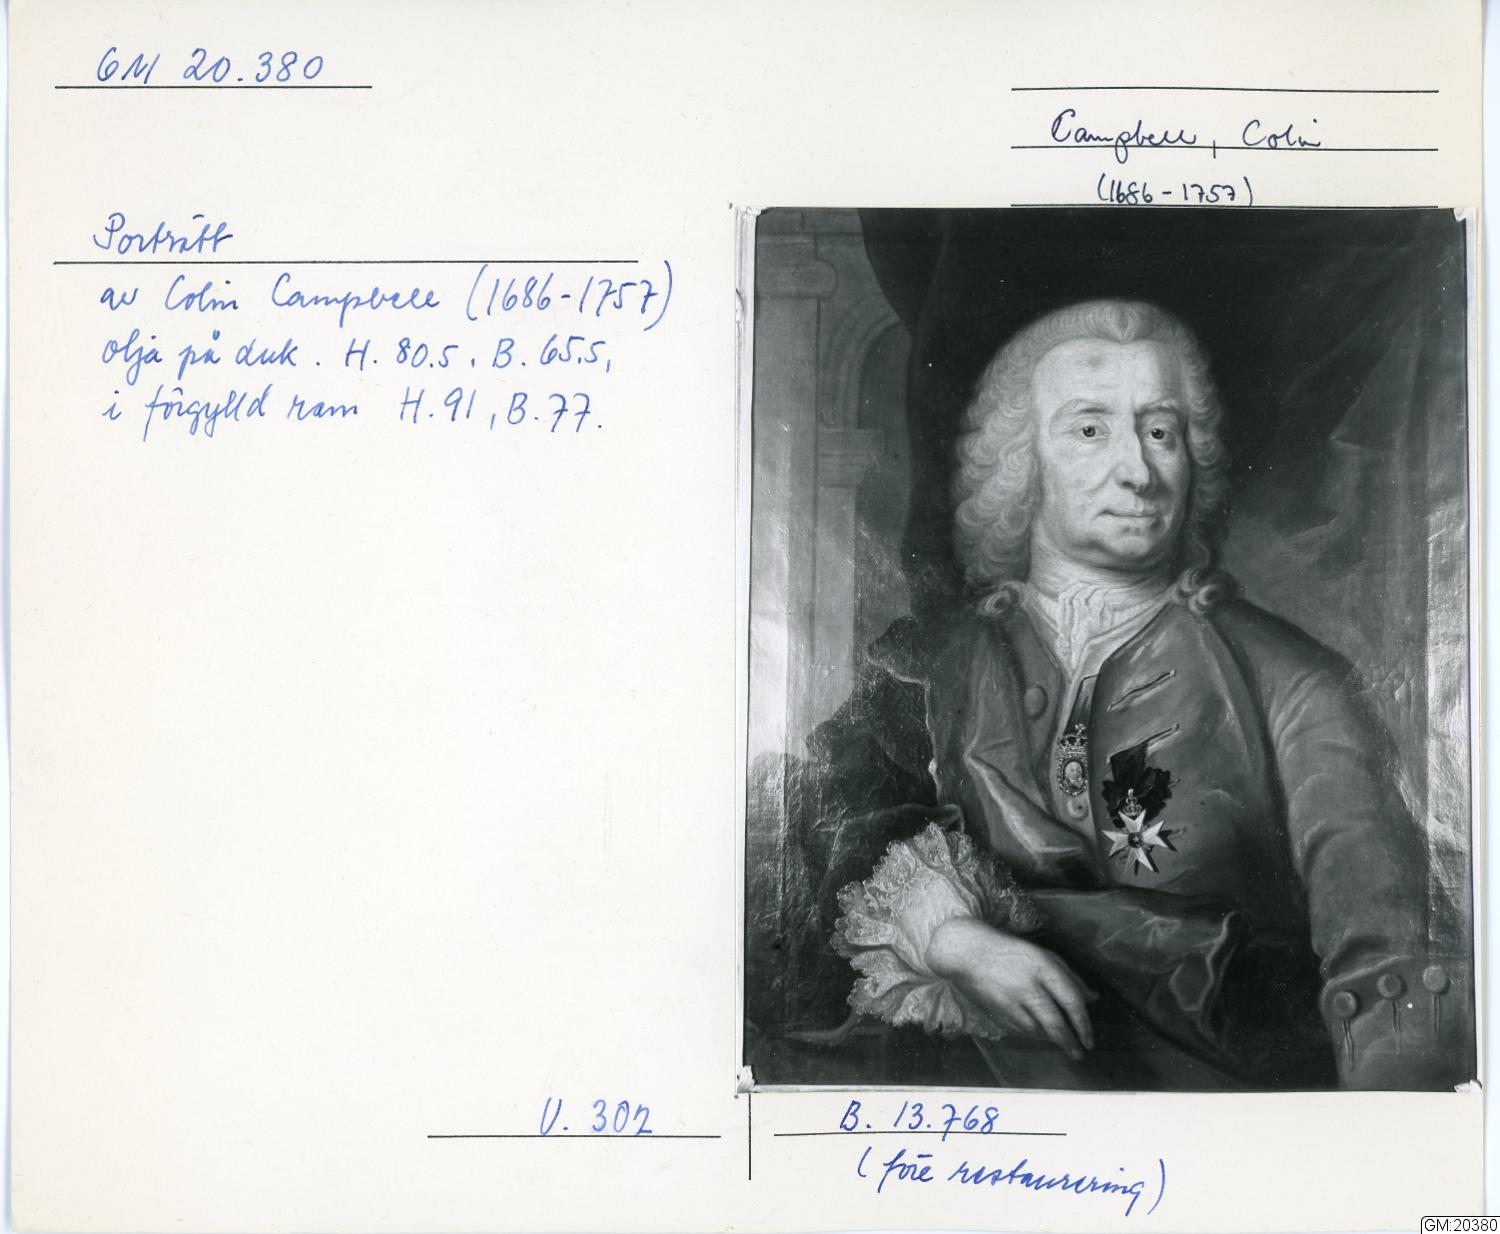 GM 20.380
Campbell, Colin
(1686-1757)
Porträtt
av Colin Campbell (1686-1757)
olja på duk. H. 80.5, B. 65.5,
i förgylld ram H. 91, B. 77.
V. 302
B. 13.768
(före restaurering)
GM:20380